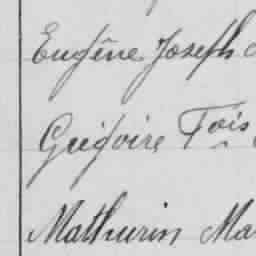 Eugène Joseph
Grégoire Fois
Mathurin Ma